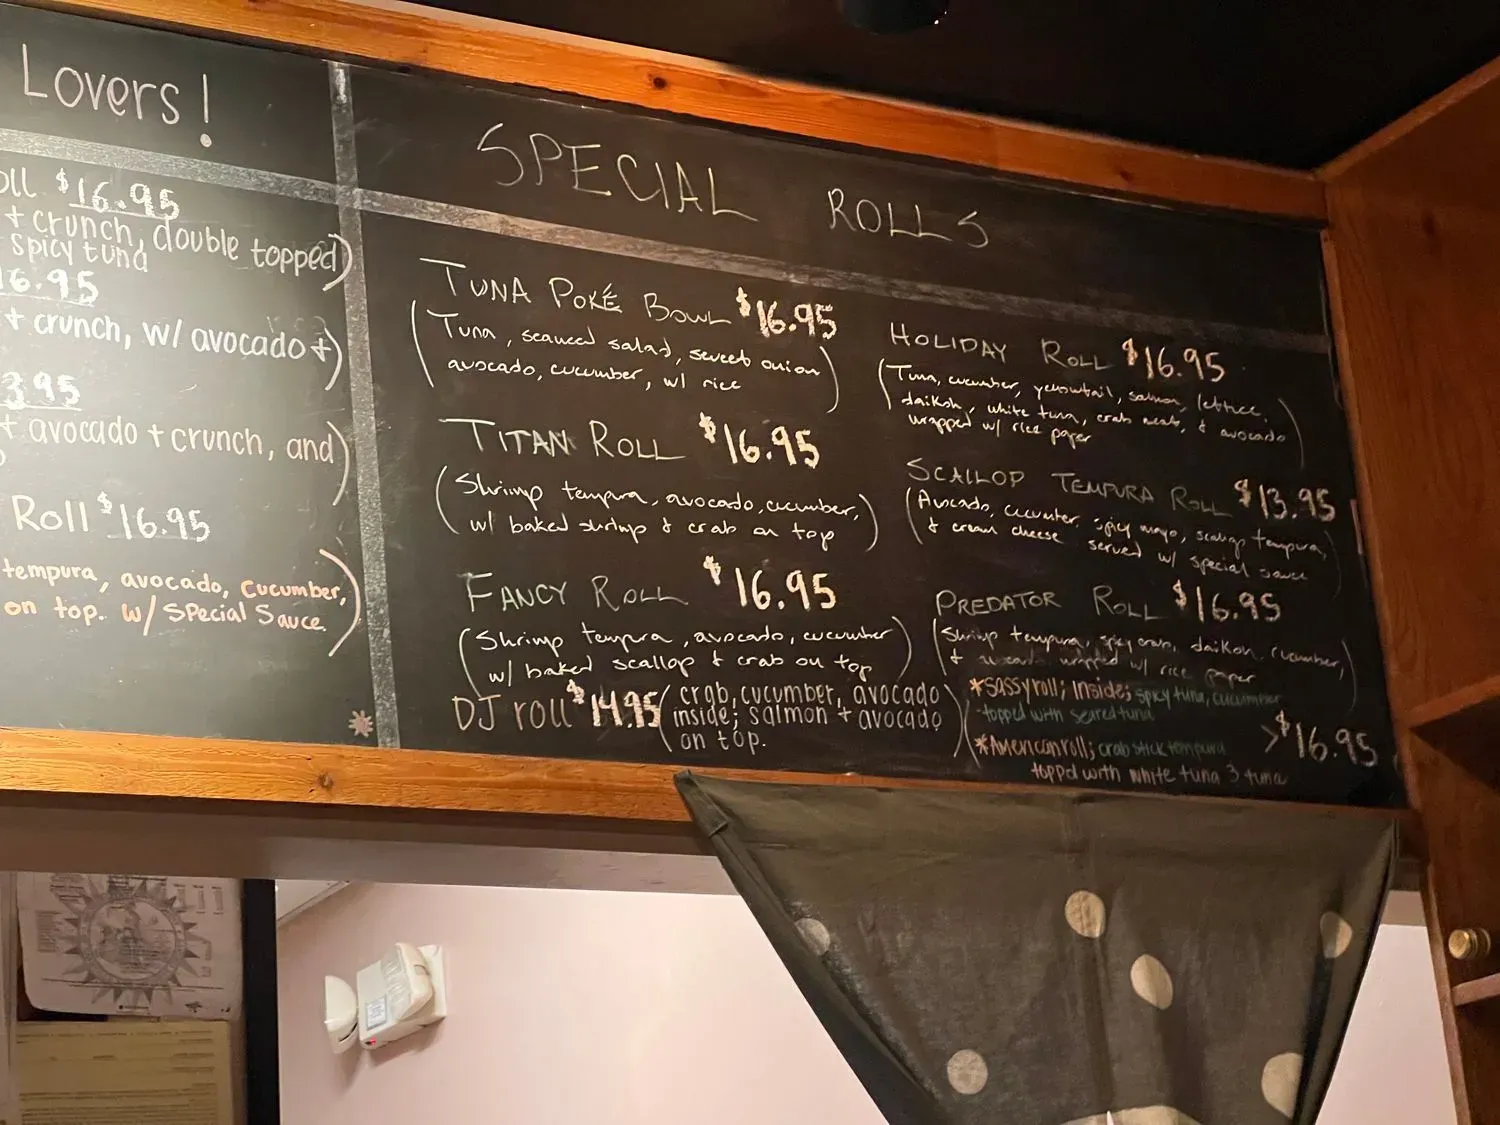 Lovers!
Roll $16.95
+ crunch, double topped)
spicy tuna
16.95
+ crunch, w/ avocado +)
3.95
+ avocado + crunch, and)
Roll $16.95
tempura, avocado, cucumber,
on top. w/ Special Sauce)
SPECIAL ROLLS
TUNA POKÉ BOWL $16.95
(Tuna, seaweed salad, sweet onion
avocado, cucumber, w/ rice)
TITAN ROLL $16.95
(Shrimp tempura, avocado, cucumber,
w/ baked shrimp & crab on top)
FANCY ROLL $16.95
(Shrimp tempura, avocado, cucumber
w/ baked scallop & crab on top)
DJ roll $14.95 (crab, cucumber, avocado
inside; salmon + avocado
on top.)
HOLIDAY ROLL $16.95
(Tuna, cucumber, yellowtail, salmon, lettuce,
daikon, white tuna, crab meat, & avocado
wrapped w/ rice paper)
SCALLOP TEMPURA ROLL $13.95
(Avocado, cucumber, spicy mayo, scallop tempura,
& cream cheese served w/ special sauce)
PREDATOR ROLL $16.95
(Shrimp tempura, spicy crab, daikon, cucumber,
& avocado wrapped w/ rice paper)
*Sassy roll; Inside; spicy tuna, cucumber
topped with seared tuna
>$16.95
*American roll; crab stick tempura
topped with white tuna 3 tuna